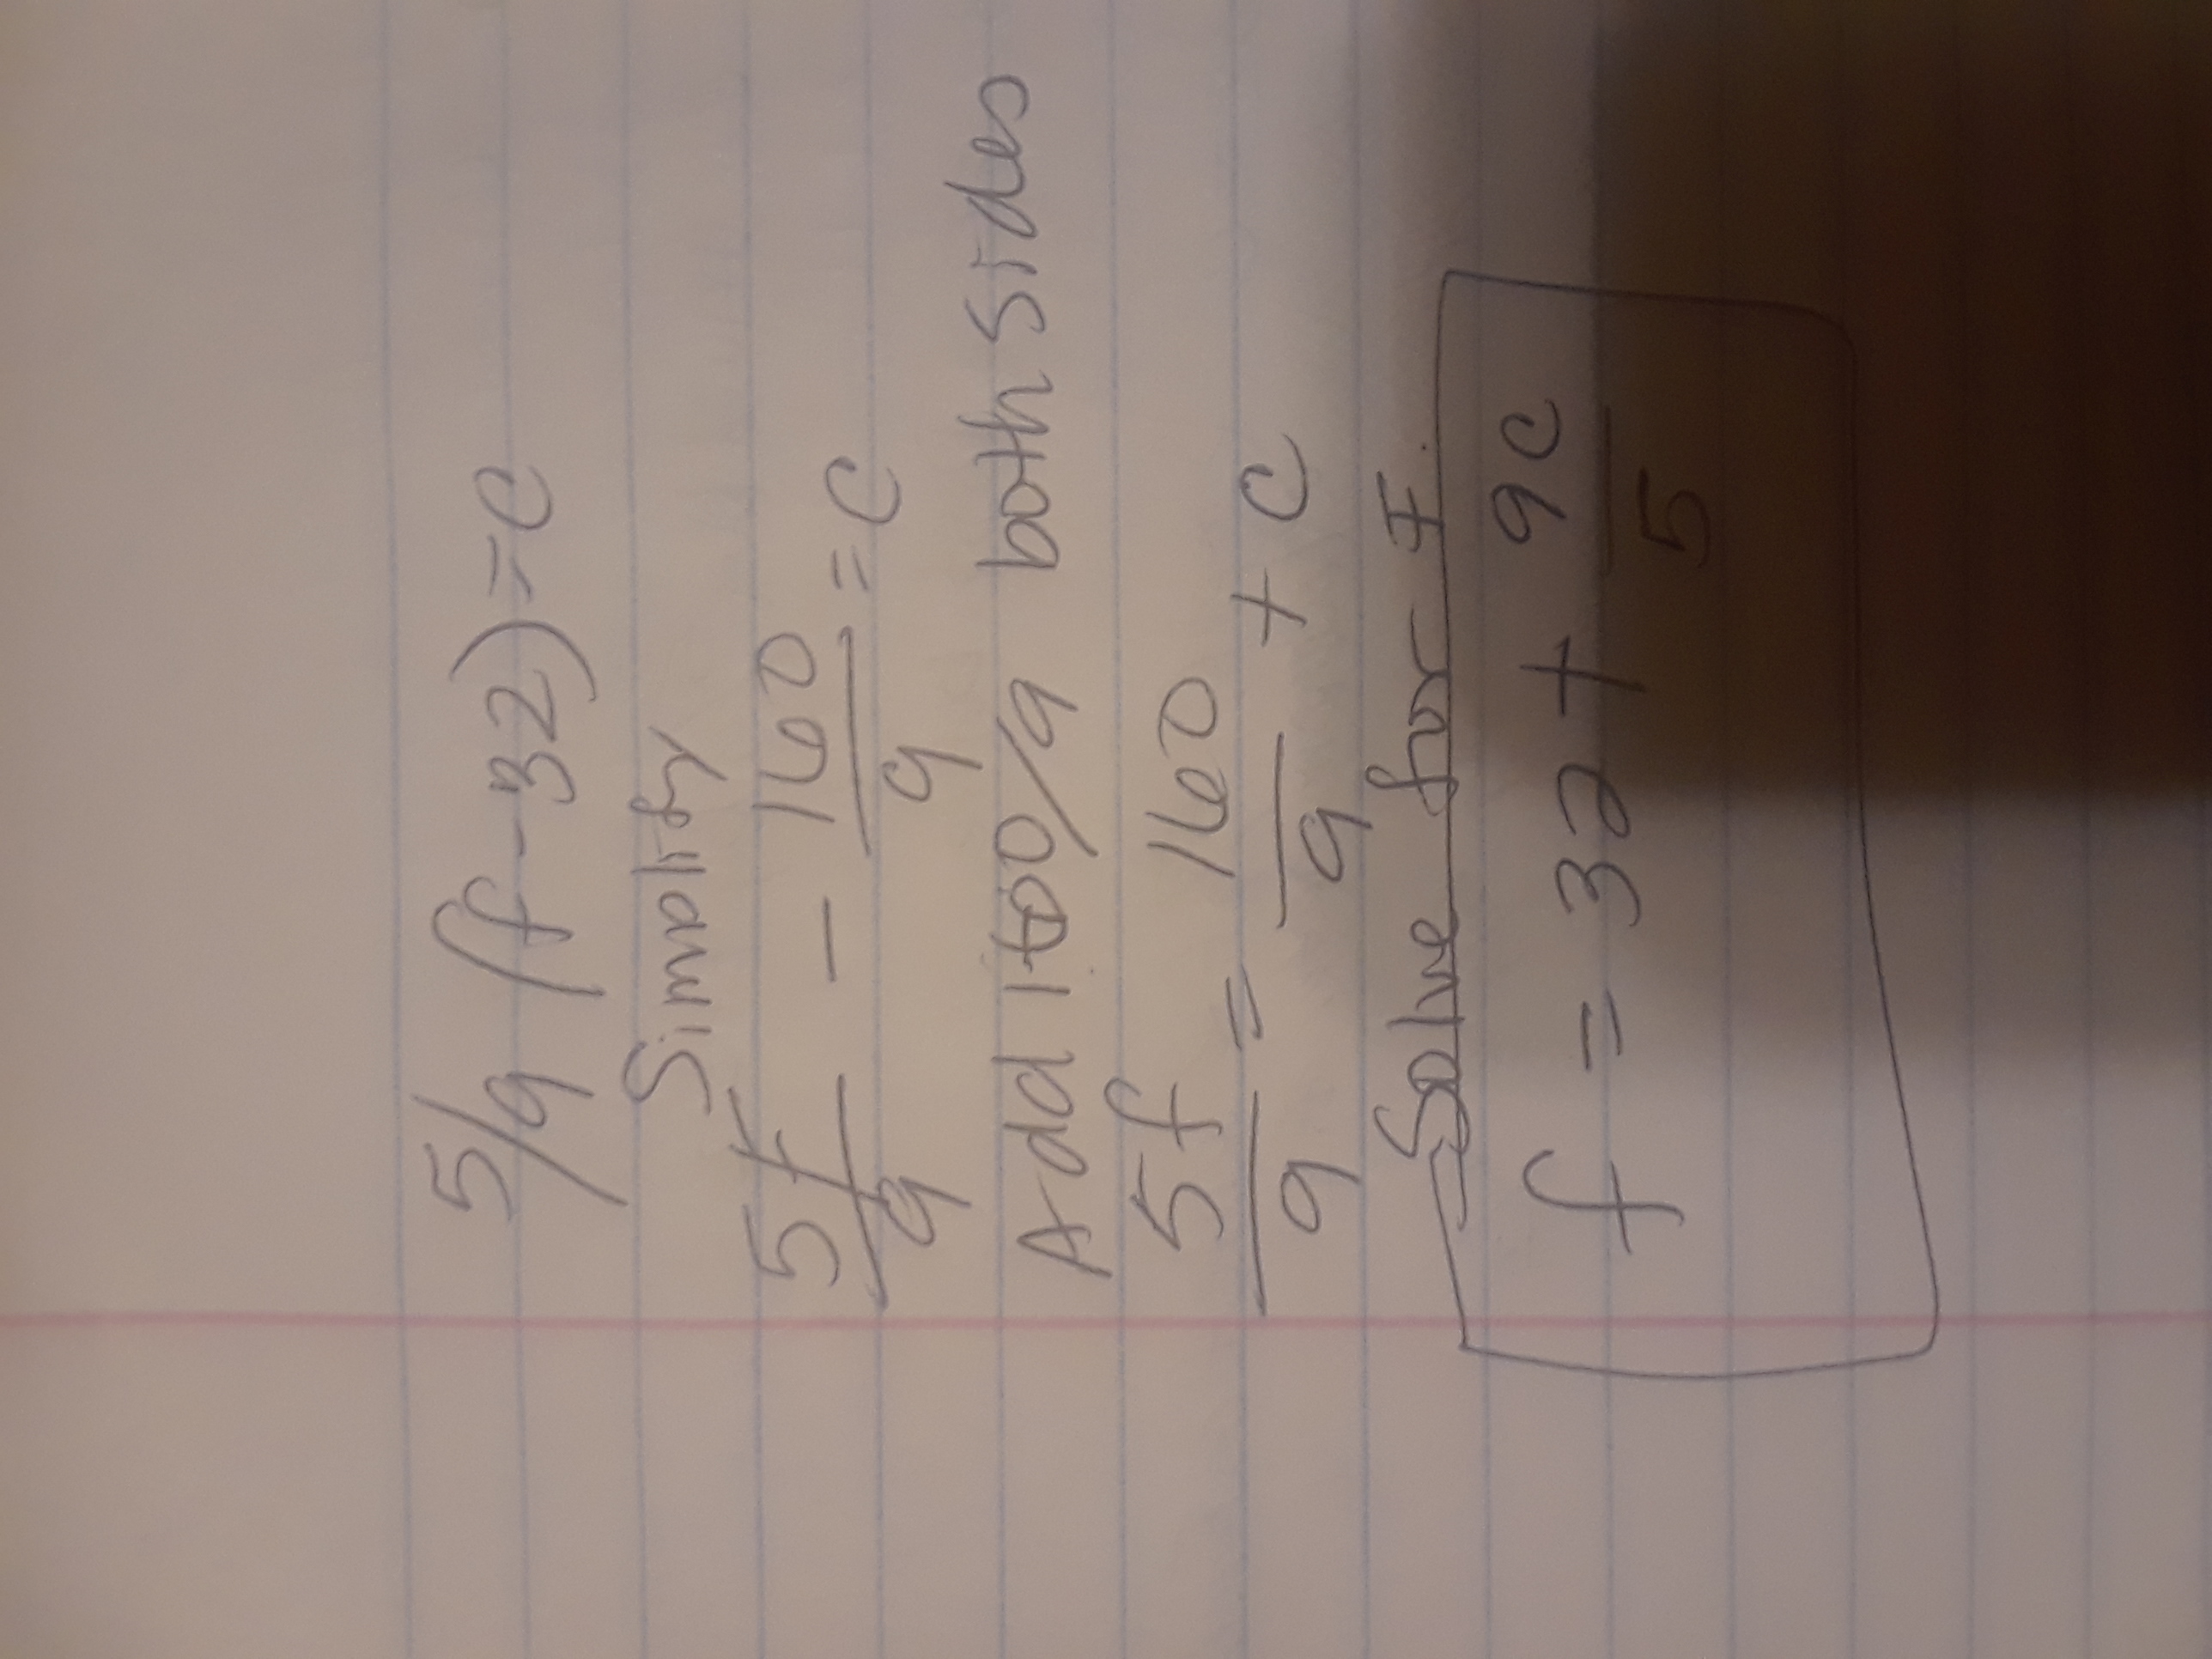 5/9 (f-32)=c
Simplify
5f/9 - 160/9 = c
Add 160/9 both sides
5f/9 = 160/9 + c
Solve for F.
f = 32 + 9c/5